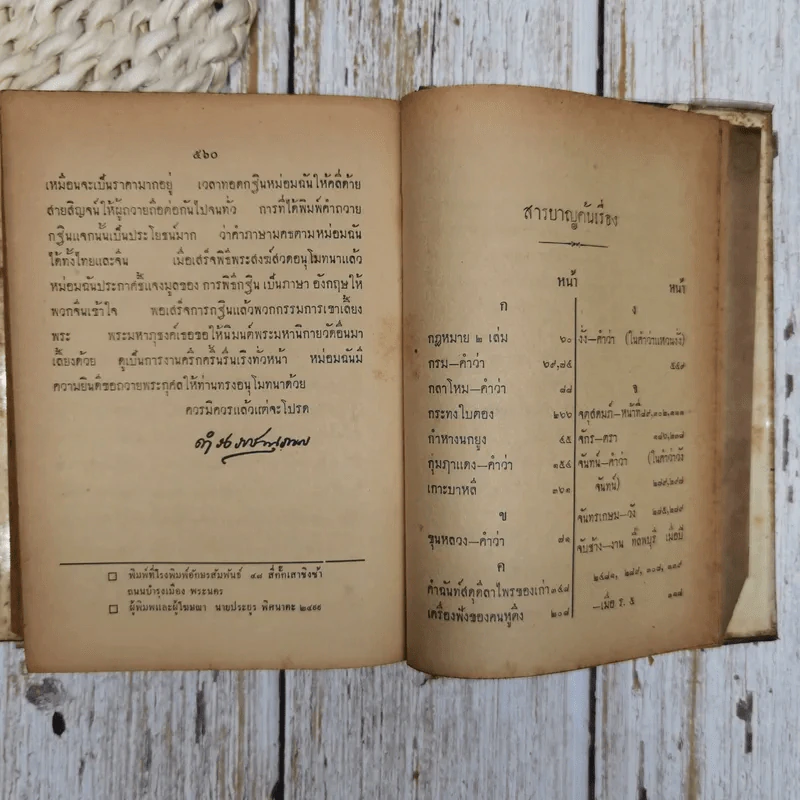 ๕๖๐
เหมือนจะเป็นราคามากอยู่ เวลาทอดกฐินหม่อมฉันให้คลี่ด้าย
สายสิญจน์ให้ผู้ถวายถือต่อกันไปจนทั่ว การที่ได้พิมพ์คำถวาย
กฐินแจกนั้นเป็นประโยชน์มาก ว่าคำภาษามคธตามหม่อมฉัน
ได้ทั้งไทยและจีน เมื่อเสร็จพิธีพระสงฆ์สวดอนุโมทนาแล้ว
หม่อมฉันประกาศชี้แจงมูลของ การพิธีกฐิน เป็นภาษา อังกฤษให้
พวกจีนเข้าใจ พอเสร็จการกฐินแล้วพวกกรรมการเขาเลี้ยง
พระ พระมหาภุชงค์เธอขอให้นิมนต์พระมหานิกายวัดอื่นมา
เลี้ยงด้วย ดูเป็นการงานครึกครื้นรื่นเริงทั่วหน้า หม่อมฉันมี
ความยินดีขอถวายพระกุศลให้ท่านทรงอนุโมทนาด้วย
ควรมิควรแล้วแต่จะโปรด
พิมพ์ที่โรงพิมพ์อักษรสัมพันธ์ ๔๘ สี่กั๊กเสาชิงช้า
ถนนบำรุงเมือง พระนคร
ผู้พิมพและผู้โฆษณา นายประยูร พิศนาคะ ๒๔๙๙
สารบาญค้นเรื่อง
หน้า
ก
กฎหมาย ๒ เล่ม ๖๐
กรม—คำว่า ๖๙,๗๕
กลาโหม—คำว่า ๘๘
กระทงใบตอง ๒๖๖
กำหางนกยูง ๔๕
กุ่มฦๅแดง—คำว่า ๑๕๔
เกาะบาหลี ๓๖๑
ข
ขุนหลวง—คำว่า ๘๑
ค
คำฉันท์สดุดีลาไพรของเก่า ๓๔๘
เครื่องฟังของคนหูตึง ๒๐๘
หน้า
ง
งั่ง—คำว่า (ในคำว่าแหวนงั่ง)
๕๕๙
จ
จตุสดมภ์—หน้าที่ ๘๙,๑๐๒,๑๑๑
จักร—ตรา
จันทน์—คำว่า (ในคำว่าวัง
จันทน์) ๒๘๙,๒๙๘
จันทรเกษม—วัง ๒๘๕,๒๘๙
จับช้าง—งาน ที่ลพบุรี เมื่อปี
๒๔๘๑, ๒๘๙, ๓๐๘, ๑๑๙
—เมื่อ ร. ๕ ๑๑๘